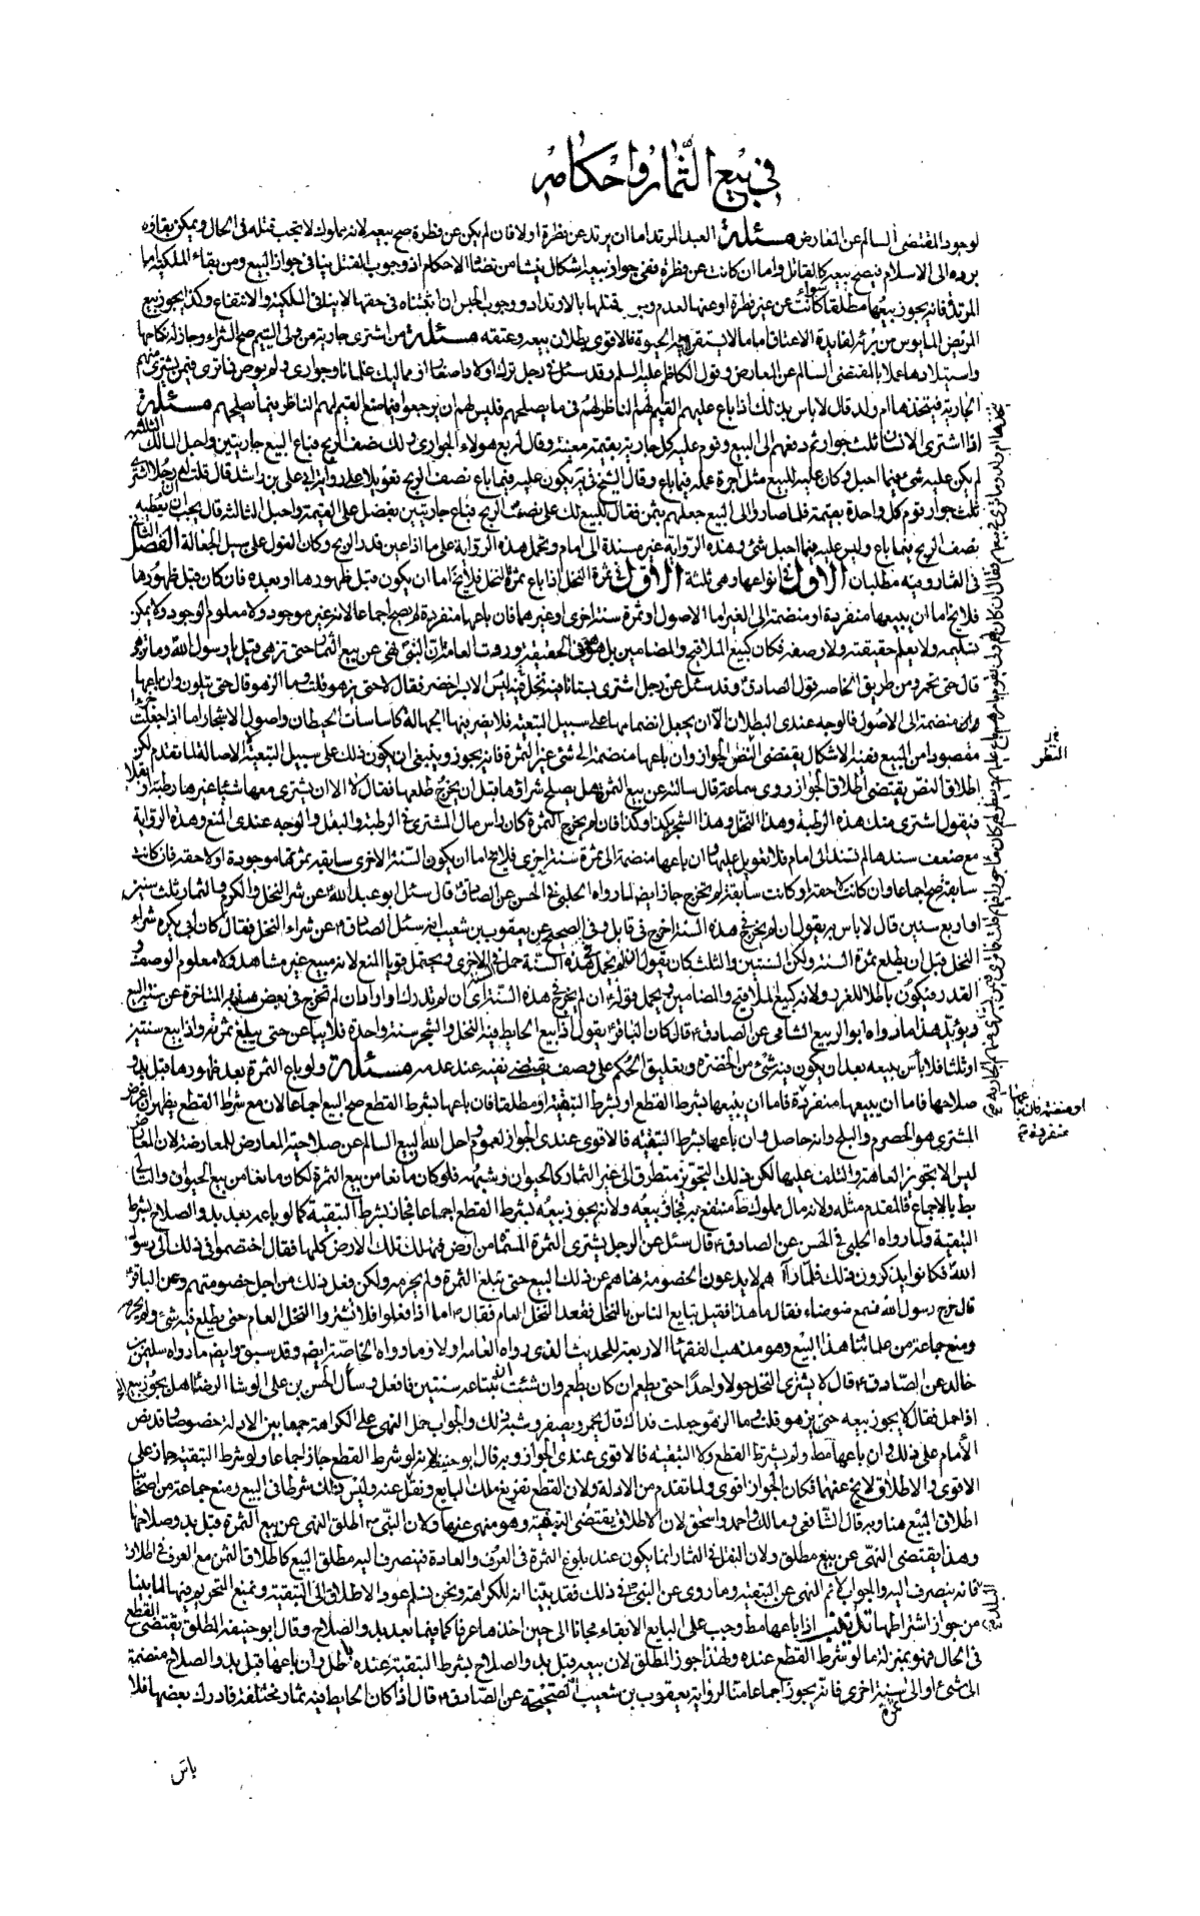 في بيع الثمار واحكامه
لوجود المقتضى السالم عن المعارض مسئلة العبد المرتد اما ان يرتد عن فطرة اولا فان لم يكن عن فطرة صح بيعه لانه مملوك لا يجب قتله فى الحال ويمكن بقاؤه
برده الى الاسلام فيصح بيعه كالقاتل واما ان كانت عن فطرة ففى جواز بيعه اشكال ينشا من تضاد الاحكام اذ وجوب القتل ينافى جواز البيع ومن بقاء الملكية اما
المرتدة فانه يجوز بيعها مطلقا سواء كانت عن غير فطرة او عنها لعدم وجوب قتلها بالارتداد ووجوب الحبس ان اثبتناه فى حقها لا ينافى الملكية والانتفاع وكذا يجوز بيع
المريض المايوس من برئه لفايدة الاعتاق اما ما لا يستقر فيه الحيوة فالاقوى بطلان بيعه وعتقه مسئلة من اشترى جارية من ولى اليتيم صح الشراء وجاز له نكاحها
واستيلادها عملا بالمقتضى السالم عن المعارض وقول الكاظم عليه السلم وقد سئل عن رجل ترك اولادا صغارا ومماليك غلمانا وجوارى ولم يوص فما ترى فيمن يشترى منهم
الجارية فيتخذها ام ولد قال لا باس بذلك اذا باع عليهم القيم لهم الناظر لهم فى ما يصلحهم فليس لهم ان يرجعوا فيما صنع القيم لهم الناظر فيما يصلحهم مسئلة
اذا اشترى الانسان ثلث جوار ثم دفعهم الى البيع وقوم عليه كل جارية بقيمة معينة وقال له بع هولاء الجوارى ولك نصف الربح فباع البيع جاريتين واحبل المالك الثالثة
لم يكن عليه شئ فيما احبل وكان عليه للبيع مثل اجرة عمله فيما باع وقال الشيخ فى يه يكون عليه فيما باع نصف الربح تعويلا على رواية ابى على بن راشد قال قلت له ان رجلا اشترى
ثلث جوار قوم كل واحدة بقيمة فلما صاروا الى البيع جعلهم بثمن فقال للبيع لك على نصف الربح فباع جاريتين بفضل على القيمة واحبل الثالثة قال يجب ان يعطيه
نصف الربح فيما باع وليس عليه فيما احبل شئ وهذه الرواية غير مسندة الى امام وتحمل هذه الرواية على ما اذا عين قدر الربح وكان القول على سبيل الجعالة الفصل الثانى
فى الثمار وفيه مطلبان الاول فى انواعها وهى ثلثة الاول ثمرة النخل اذا باع ثمرة النخل فلا يخ اما ان يكون قبل ظهورها او بعده فان كان قبل ظهورها
فلا يخ اما ان يبيعها منفردة او منضمة الى الغير اما الاصول او ثمرة سنة اخرى او غيرهما فان باعها منفردة لم يصح اجماعا لانه غير موجود ولا معلوم الوجود ولا يمكن
تسليمه ولا يعلم حقيقته ولا وصفه فكان كبيع الملاقيح والمضامين بل هو فى الحقيقة وروت العامة ان النبى نهى عن بيع الثمار حتى تزهى قيل يا رسول الله وما تزهو
قال حتى تحمر ومن طريق الخاصة قول الصادق وقد سئل عن رجل اشترى بستانا فيه نخل فيه ليس الا بسر اخضر فقال لا حتى يزهو قلت وما الزهو قال حتى يتلون وان باعها
منضمة الى الاصول فالوجه عندى البطلان الا ان يجعل انضمامها على سبيل التبعية فلا يضر فيها الجهالة كاساسات الحيطان واصول الاشجار اما اذا جعلت
مقصودا من البيع ففيه الاشكال يقتضى النص الجواز وان باعها منضمة الى شئ غير الثمرة فانه يجوز وينبغى ان يكون ذلك على سبيل التبعية لا الاصالة لما تقدم لكن
اطلاق النص يقتضى اطلاق الجواز روى سماعة قال سالته عن بيع الثمرة هل يصلح شراؤها قبل ان يخرج طلعها فقال لا الا ان يشترى معها شيئا غيرها رطبة او بقلا
فيقول اشترى منك هذه الرطبة وهذا النخل وهذا الشجر بكذا وكذا فان لم يخرج الثمرة كان راس مال المشترى فى الرطبة والبقل والوجه عندى المنع وهذه الرواية
مع ضعف سندها لم تسند الى امام فلا تعويل عليها وان باعها منضمة الى ثمرة سنة اخرى فلا يخ اما ان يكون السنة الاخرى سابقة بثمرتها موجودة او لاحقة فان كانت
سابقة صح اجماعا وان كانت لاحقة او كانت سابقة لم تخرج جاز ايضا لما رواه الحلبى فى الحسن عن الصادق قال سئل ابو عبد الله عن شرى النخل والكرم والثمار ثلث سنين
او اربع سنين قال لا باس به يقول ان لم يخرج فى هذه السنة اخرج فى قابل وفى الصحيح عن يعقوب بن شعيب انه سئل الصادق عن شراء النخل فقال كان ابى يكره شراء
النخل قبل ان يطلع ثمرة السنة ولكن السنتين والثلث كان يقول ان لم يحمل فى هذه السنة حمل فى الاخرى ويحتمل قويا المنع لانه مبيع غير مشاهد ولا معلوم الوصف و
القدر فيكون باطلا للغرر ولانه كبيع الملاقيح والمضامين ويحمل قوله ان لم يخرج فى هذه السنة اى ان لم تدرك او ارادان لم تخرج فى بعض هذه المتاخرة عن سنة البيع
ويؤيد هذا ما رواه ابو الربيع الشامى عن الصادق قال كان الباقر يقول اذا بيع الحايط فيه النخل والشجر سنة واحدة فلا يباعن حتى يبلغ ثمرته واذا بيع سنتين
او ثلثا فلا بأس ببيعه بعد ان يكون فيه شئ من الخضرة وتعليق الحكم على وصف يقتضى نفيه عند عدمه مسئلة ولو باع الثمرة بعد ظهورها قبل بدو
صلاحها فاما ان يبيعها منفردة فاما ان يبيعها بشرط القطع او بشرط التبقية او مطلقا فان باعها بشرط القطع صح البيع اجماعا لان مع شرط القطع يظهر ان غرض
المشترى هو الحصرم والبلح وانه حاصل وان باعها بشرط التبقية فالاقوى عندى الجواز لعموم واحل الله البيع السالم عن صلاحية المعارض للمعارضة لان المعارض
ليس الا تجويز العاهة والتلف عليها لكن ذلك التجويز متطرق الى غير الثمار كالحيوان وشبهه فلو كان مانعا من بيع الثمرة لكان مانعا من بيع الحيوان والتالى
بط بالاجماع فالمقدم مثله ولانه مال مملوك طاهر منتفع به فجاز بيعه ولانه يجوز بيعه بشرط القطع اجماعا فجاز بشرط التبقية كما لو باعه بعد بدو الصلاح بشرط
التبقية ولما رواه الحلبى فى الحسن عن الصادق قال سئل عن الرجل يشترى الثمرة المسماة من ارض فتهلك تلك الارض كلها فقال اختصموا فى ذلك الى رسول
الله فكانوا يذكرون ذلك فلما رآهم لا يدعون الخصومة نهاهم عن ذلك البيع حتى تبلغ الثمرة ولم يحرمه ولكن فعل ذلك من اجل خصومتهم وعن الباقر
قال خرج رسول الله فسمع ضوضاء فقال ما هذا فقيل تبايع الناس بالنخل فقعد النخل العام فقال اما اذا فعلوا فلا تشتروا النخل العام حتى يطلع فيه شئ ولم يحرمه
ومنع جماعة من علمائنا هذا البيع وهو مذهب الفقهاء الاربعة للحديث الذى رواه العامة اولا وما رواه الخاصة ايض وقد سبق وايض ما رواه سليمن بن
خالد عن الصادق قال لا يشترى النخل حولا واحدا حتى يطعم ان كان يطعم وان شئت ان تبتاعه سنتين فافعل وسأل الحسن بن على الوشا الرضا هل يجوز بيع النخل
اذا حمل فقال لا يجوز بيعه حتى يزهو قلت وما الزهو جعلت فداك قال يحمر ويصفر وشبه ذلك والجواب حمل النهى على الكراهة جمعا بين الادلة خصوصا وقد نص
الأمام على ذلك وان باعها مط ولم يشترط القطع ولا التبقية فالاقوى عندى الجواز وبه قال ابو حنيفة لانه لو شرط القطع جاز اجماعا ولو شرط التبقية جاز على
الاقوى والاطلاق لا يخ عنهما فكان الجواز اقوى ولما تقدم من الادلة ولان القطع تفريغ ملك البايع ونقل عنه وليس ذلك شرطا فى البيع ومنع جماعة من اصحابنا
اطلاق البيع هنا وبه قال الشافعى ومالك واحمد واسحق لان الاطلاق يقتضى التبقية وهو منهى عنها ولان النبى اطلق النهى عن بيع الثمرة قبل بدو صلاحها
وهذا يقتضى النهى عن بيع مطلق ولان النقل فى الثمار انما يكون عند بلوغ الثمرة فى العرف والعادة فينصرف اليه مطلق البيع كاطلاق الثمن مع العرف فى اطلاق
فانه ينصرف اليه والجواب لا ثم النهى عن التبقية وما روى عن النبى فى ذلك فقد بينا انه للكراهة ونحن نسلم عود الاطلاق الى التبقية ونمنع التحريم فيها لما بينا
من جواز اشتراطها تذنيب اذا باعها مط وجب على البايع الابقاء مجانا الى حين اخذها عرفا كما فيما بعد بدو الصلاح وقال ابو حنيفة المطلق يقتضى القطع
فى الحال فهو بمنزلة ما لو شرط القطع عنده ولهذا جوز المطلق لان بيعه قبل بدو الصلاح بشرط التبقية عنده باطل وان باعها قبل بدو الصلاح منضمة
الى شئ او الى سنة اخرى فانه يجوز اجماعا منا لرواية يعقوب بن شعيب الصحيحة عن الصادق قال اذا كان الحايط فيه ثمار مختلفة فادرك بعضها فلا
باس